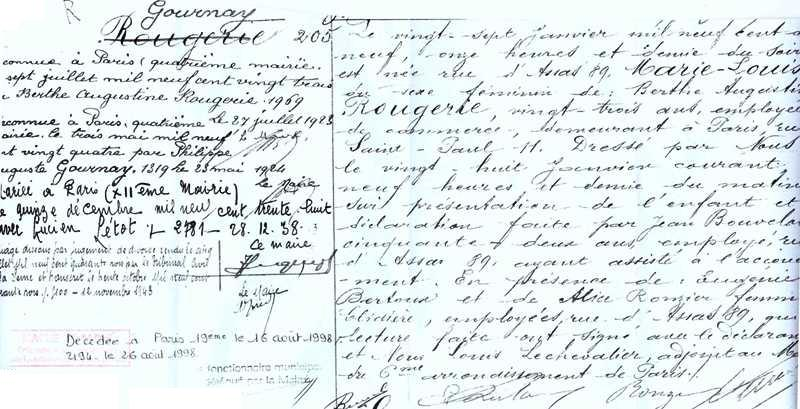 R
Gournay
Rougerie 205
connue à Paris (quatrième mairie
sept juillet mil neuf cent vingt trois
Berthe Augustine Rougerie. 1969
reconnue à Paris, quatrième le 27 juillet 1923
mairie. le trois mai mil neuf
cent vingt quatre par Philippe
Auguste Gournay. 1319 le 23 mai 1924
le Maire
Mariée à Paris (XIIème Mairie)
le quinze décembre mil neuf cent trente huit
avec Lucien Létot 2781 - 28.12.38.
Ce maire
mariage dissous par jugement de divorce rendu le
mil neuf cent quarante trois par le tribunal civil
de la Seine et transcrit le trente octobre mil neuf cent
quarante trois 12 novembre 1943
le Maire
Décédée à Paris 19ème le 16 août 1998
2194. le 26 août 1998.
fonctionnaire municipal
délégué par le Maire
Le vingt-sept Janvier mil neuf cent
neuf, onze heures et demie du soir
est née rue d'Assas 89, Marie-Louise
du sexe féminin de: Berthe Augustine
Rougerie, vingt-trois ans, employée
de commerce, demeurant à Paris, rue
Saint-Paul 11. Dressé par Nous
le vingt huit Janvier courant
neuf heures et demie du matin
sur présentation de l'enfant et
déclaration faite par Jean
cinquante-deux ans, employé, rue
d'Assas 89, ayant assisté à l'accouche-
-ment. En présence de: Eugénie
Bertoux et de Alice Romier femme
employées, rue d'Assas 89, qui
Lecture faite ont signé avec le déclarant
et Nous Louis Lechevalier, adjoint au Maire
du 6me arrondissement de Paris.